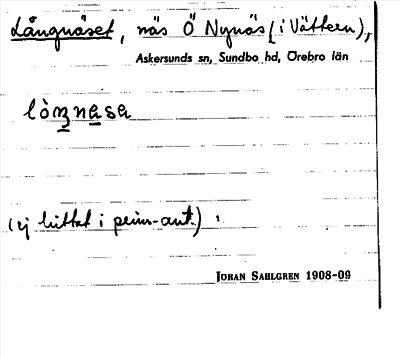 Långnäset, näs Ö Nynäs (i Vättern),
Askersunds sn, Sundbo hd, Örebro län
(ej hittat i prim-ant.)
JÖRAN SAHLGREN 1908-09